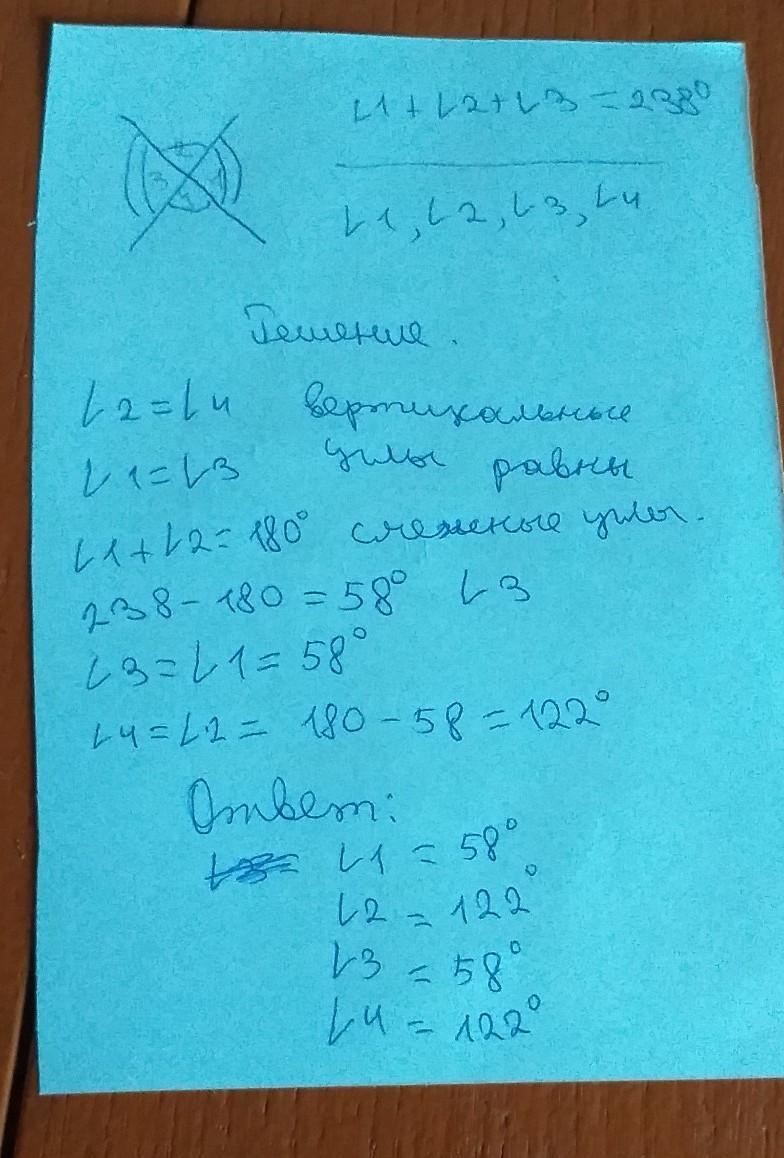 ∠1+∠2+∠3=238°
∠1,∠2,∠3,∠4
2
3
1
4
Решение.
∠2=∠4 вертикальные
∠1=∠3 углы равны
∠1+∠2=180° смежные углы.
238-180=58° ∠3
∠3=∠1=58°
∠4=∠2= 180-58=122°
Ответ:
∠1 = 58°
∠2 = 122°
∠3 = 58°
∠4 = 122°